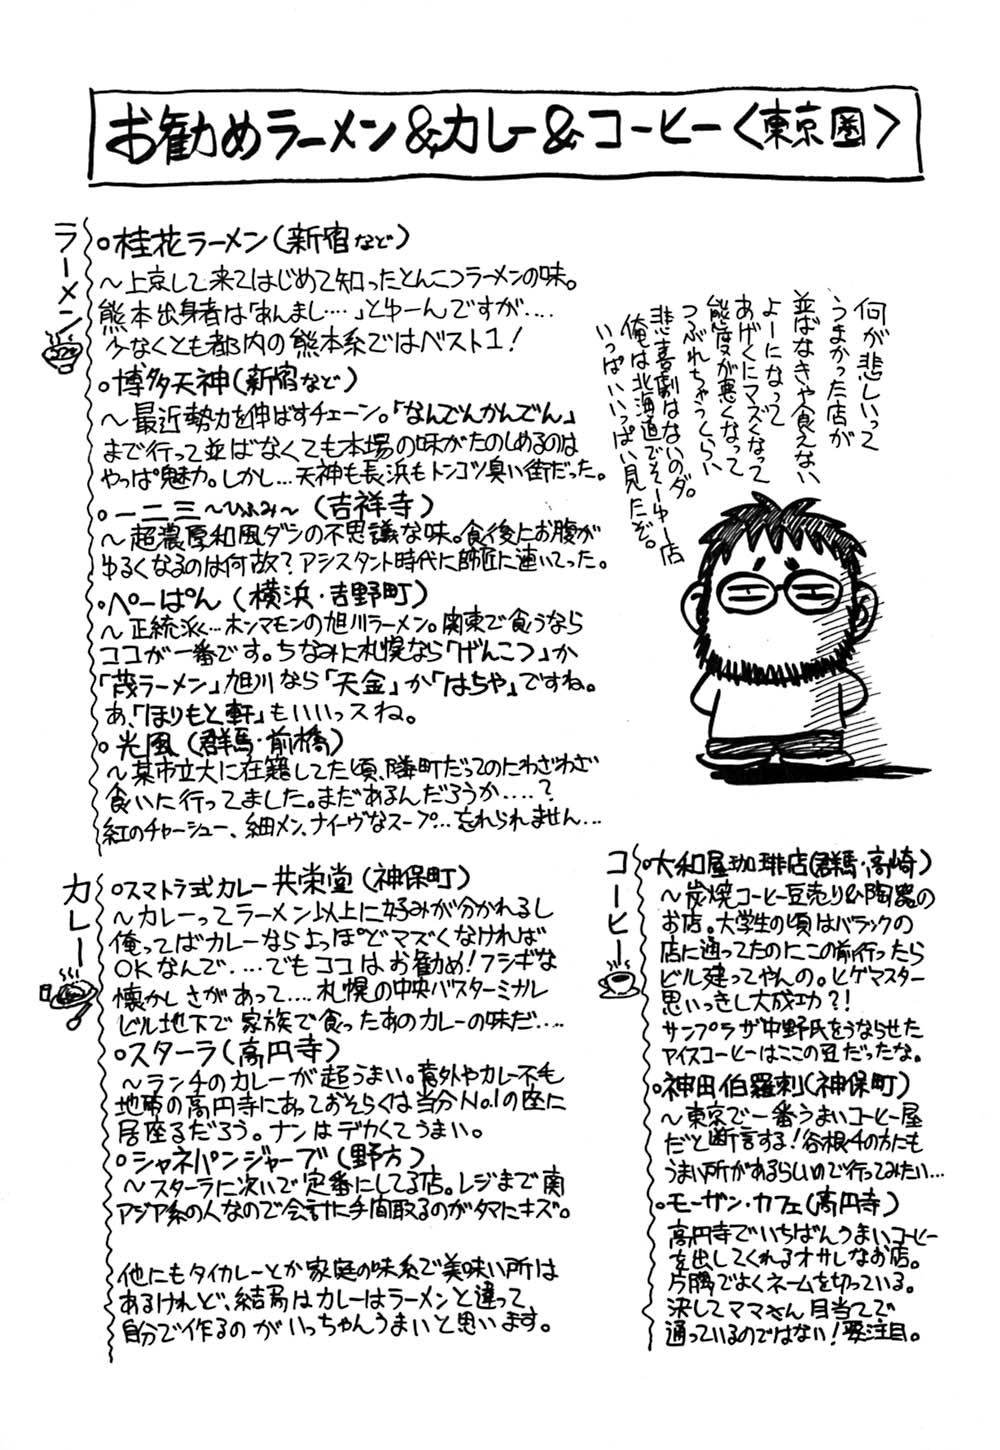 お勧めラーメン&カレー&コーヒー〈東京圏〉
ラーメン
○桂花ラーメン(新宿など)
～上京して来てはじめて知ったとんこつラーメンの味。
熊本出身者は「あんまし‥‥」とゆーんですが‥‥
少なくとも都内の熊本系ではベスト1!
○博多天神(新宿など)
～最近勢力を伸ばすチェーン。「なんでんかんでん」
まで行って並ばなくても本場の味がたのしめるのは
やっぱ魅力。しかし…天神も長浜もトンコツ臭い街だった。
○一二三～ひふみ～(吉祥寺)
～超濃厚和風ダシの不思議な味。食後にお腹が
ゆるくなるのは何故?アシスタント時代に師匠に連いてった。
○ぺーぱん(横浜・吉野町)
～正統派…ホンマモンの旭川ラーメン。関東で食うなら
ココが一番です。ちなみに札幌なら「げんこつ」か
「茂ラーメン」旭川なら「天金」か「はちや」ですね。
あ、「ほりもと軒」もいいっスね。
○光風(群馬・前橋)
～某市立大に在籍してた頃、隣町だってのにわざわざ
食いに行ってました。まだあるんだろうか‥‥?
紅のチャーシュー、細メン、ナイーヴなスープ…忘れられません…
何が悲しいって
うまかった店が
並ばなきゃ食えない
よーになって
あげくにマズくなって
態度が悪くなって
つぶれちゃうくらい
悲喜劇はないのダ。
俺は北海道でそーゆー店
いっぱいいっぱい見たぞ。
カレー
○スマトラ式カレー共栄堂(神保町)
～カレーってラーメン以上に好みが分かれるし
俺ってばカレーならよっぽどマズくなければ
OKなんで‥‥でもココはお勧め!フシギな
懐かしさがあって‥‥札幌の中央バスターミナル
ビル地下で家族で食ったあのカレーの味だ‥‥
○スターラ(高円寺)
～ランチのカレーが超うまい。意外やカレー不毛
地帯の高円寺にあっておそらくは当分No.1の座に
居座るだろう。ナンはデカくてうまい。
○シャネパンジャーブ(野方)
～スターラに次いで定番にしてる店。レジまで南
アジア系の人なので会計に手間取るのがタマにキズ。
他にもタイカレーとか家庭の味系で美味い所は
あるけれど、結局はカレーはラーメンと違って
自分で作るのがいっちゃんうまいと思います。
コーヒー
○大和屋珈琲店(群馬・高崎)
～炭焼コーヒー豆売り&陶器の
お店。大学生の頃はバラックの
店に通ってたのにこの前行ったら
ビル建ってやんの。ヒゲマスター
思いっきし大成功?!
サンプラザ中野氏をうならせた
アイスコーヒーはここの豆だったな。
○神田伯剌西爾(神保町)
～東京で一番うまいコーヒー屋
だと断言する!谷根千の方にも
うまい所があるらしいので行ってみたい…
○モーザン・カフェ(高円寺)
高円寺でいちばんうまいコーヒー
を出してくれるオサレなお店。
片隅でよくネームを切っている。
決してママさん目当てで
通っているのではない!要注目。